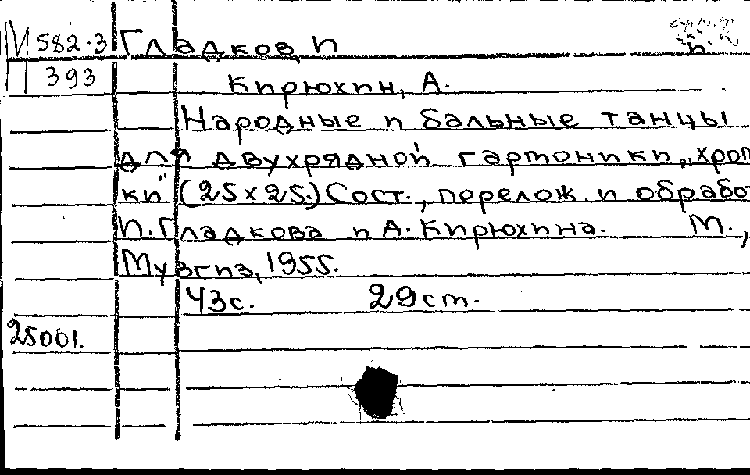 М 582.3 Гладков, П
П 393
Кирюхин, А.
Народные и бальные танцы
для двухрядной гармоники „хром
ки" (25 х 25.) Сост., перелож. и обрабо
П. Гладкова и А. Кирюхина. М.,
Музгиз, 1955.
43с. 29см.
25001.